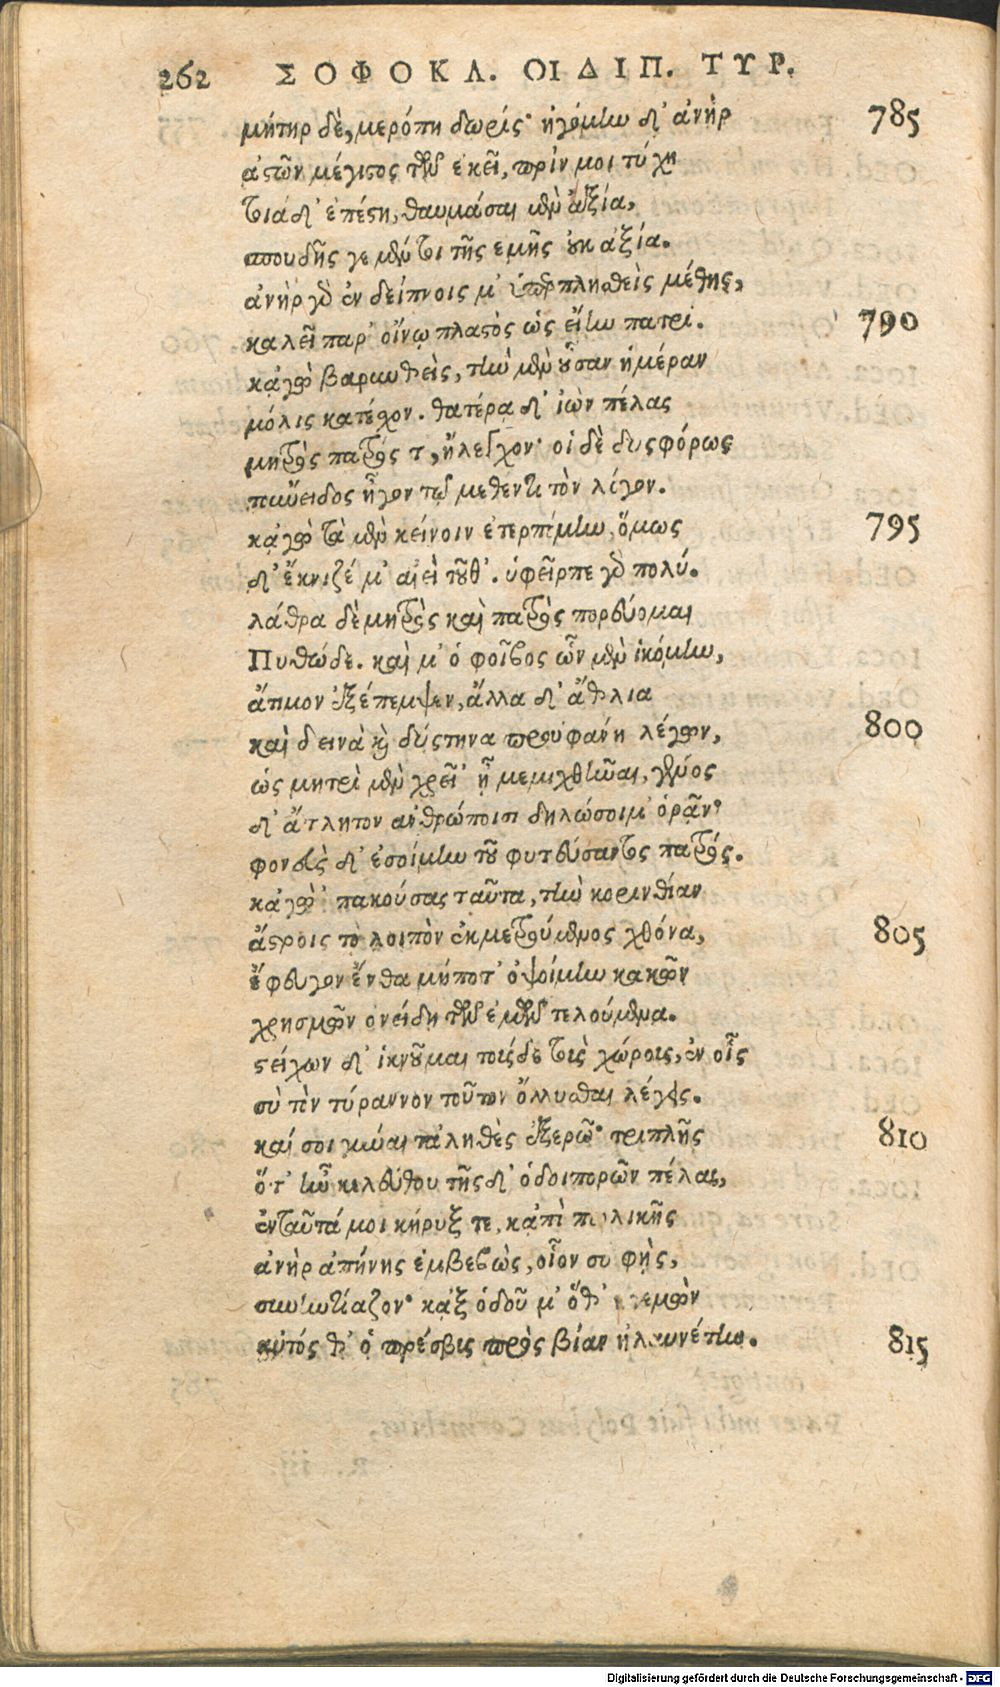 262 ΣΟΦΟΚΛ. ΟΙΔΙΠ. ΤΥΡ.
μήτηρ δὲ, μερόπη δωρίς· ἠγόμην δ' ἀνὴρ 785
ἀστῶν μέγιστος τῶν ἐκεῖ, πρίν μοι τύχη
τοιάδ' ἐπέστη, θαυμάσαι μὲν ἀξία,
σπουδῆς γε μέντοι τῆς ἐμῆς οὐκ ἀξία.
ἀνὴρ γὰρ ἐν δείπνοις μ' ὑπερπλησθεὶς μέθης,
καλεῖ παρ' οἴνῳ πλαστὸς ὡς εἴην πατρί. 790
κᾀγὼ βαρυνθεὶς, τὴν μὲν οὖσαν ἡμέραν
μόλις κατέσχον. θατέρᾳ δ' ἰὼν πέλας
μητρὸς πατρός τ', ἤλεγχον· οἱ δὲ δυσφόρως
τοὔνειδος ἦγον τῷ μεθέντι τὸν λόγον.
κᾀγὼ τὰ μὲν κείνοιν ἐτερπόμην, ὅμως 795
δ' ἔκνιζέ μ' αἰεὶ τοῦθ'. ὑφεῖρπε γὰρ πολύ.
λάθρα δὲ μητρὸς καὶ πατρὸς πορεύομαι
Πυθώδε. καὶ μ' ὁ φοῖβος ὧν μὲν ἱκόμην,
ἄτιμον ἐξέπεμψεν, ἄλλα δ' ἄθλια
καὶ δεινὰ καὶ δύστηνα προὐφάνη λέγων, 800
ὡς μητρὶ μὲν χρεῖ' ἦ μεμιχθῆναι, γένος
δ' ἄτλητον ἀνθρώποισι δηλώσοιμ' ὁρᾶν·
φονεὺς δ' ἐσοίμην τοῦ φυτεύσαντος πατρός.
κᾀγὼ 'πακούσας ταῦτα, τὴν κορινθίαν
ἄστροις τὸ λοιπὸν ἐκμετρούμενος χθόνα, 805
ἔφευγον ἔνθα μήποτ' ὀψοίμην κακῶν
χρησμῶν ὀνείδη τῶν ἐμῶν τελούμενα.
στείχων δ' ἱκνοῦμαι τούςδε τοὺς χώρους, ἐν οἷς
σὺ τὸν τύραννον τοῦτον ὄλλυσθαι λέγεις.
καί σοι γύναι τἀληθὲς ἐξερῶ· τριπλῆς 810
ὅτ' ἦν κελεύθου τῆςδ' ὁδοιπορῶν πέλας,
ἐνταῦτά μοι κήρυξ τε, κᾀπὶ πωλικῆς
ἀνὴρ ἀπήνης ἐμβεβὼς, οἷον συ φῂς,
συνηντίαζον· κᾀξ ὁδοῦ μ' ὅθ' ἡγεμὼν
αὐτός θ' ὁ πρέσβις πρὸς βίαν ἠλαυνέτην. 815